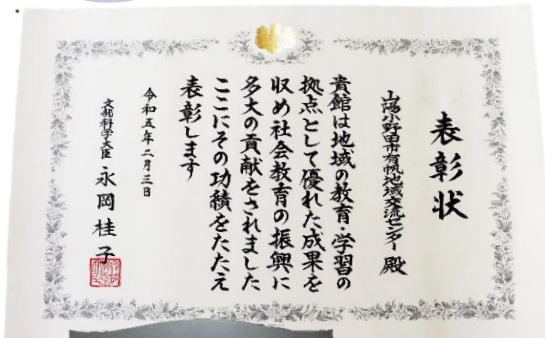 表彰状
山陽小野田市有帆地域交流センター 殿
貴館は地域の教育・学習の
拠点として優れた成果を
収め社会教育の振興に
多大の貢献をされました
ここにその功績をたたえ
表彰します
令和五年二月三日
文部科学大臣 永岡桂子